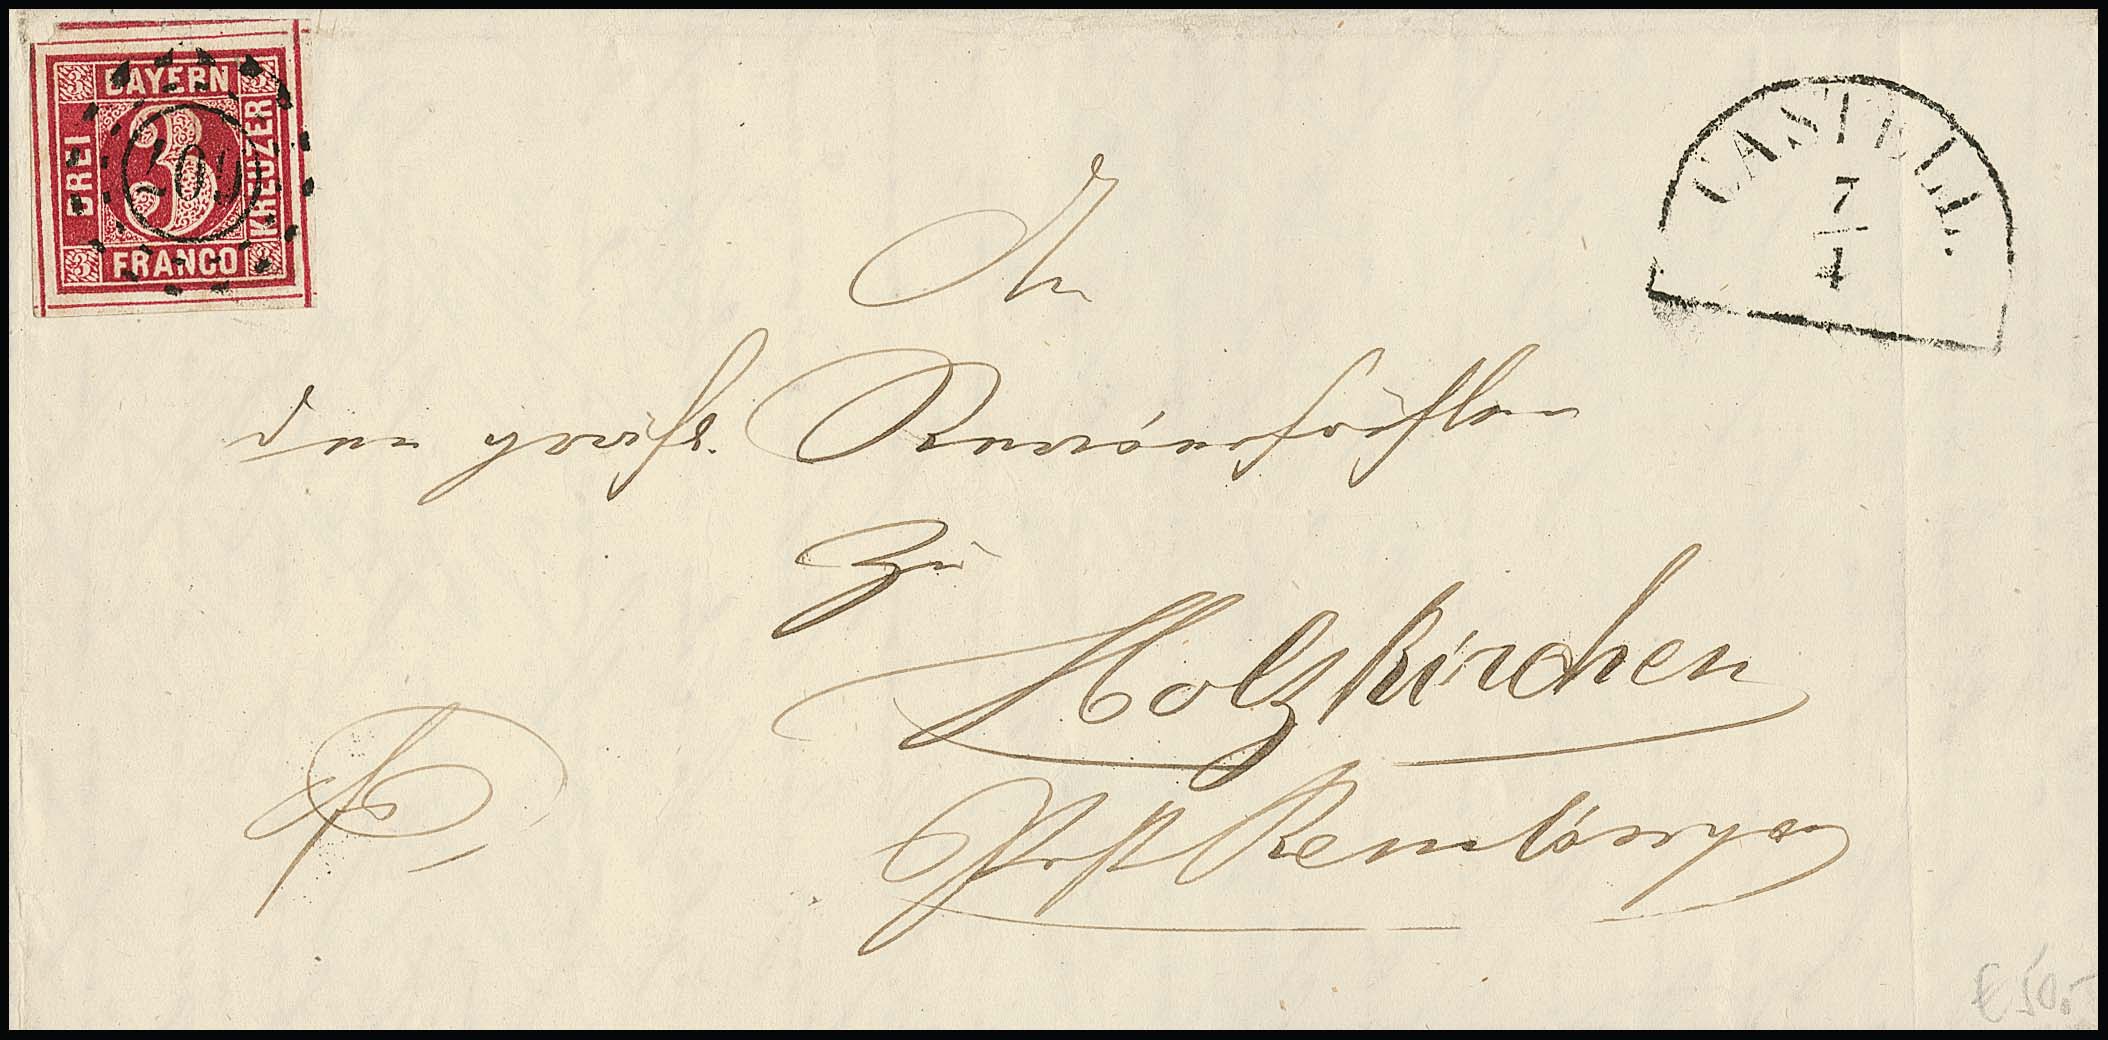 BAYERN
DREI
3
KREUZER
FRANCO
CASTELL.
7
4
An
den gräfl. Revierförster
zu
Holzkirchen
Post Remlingen
€ 50.-